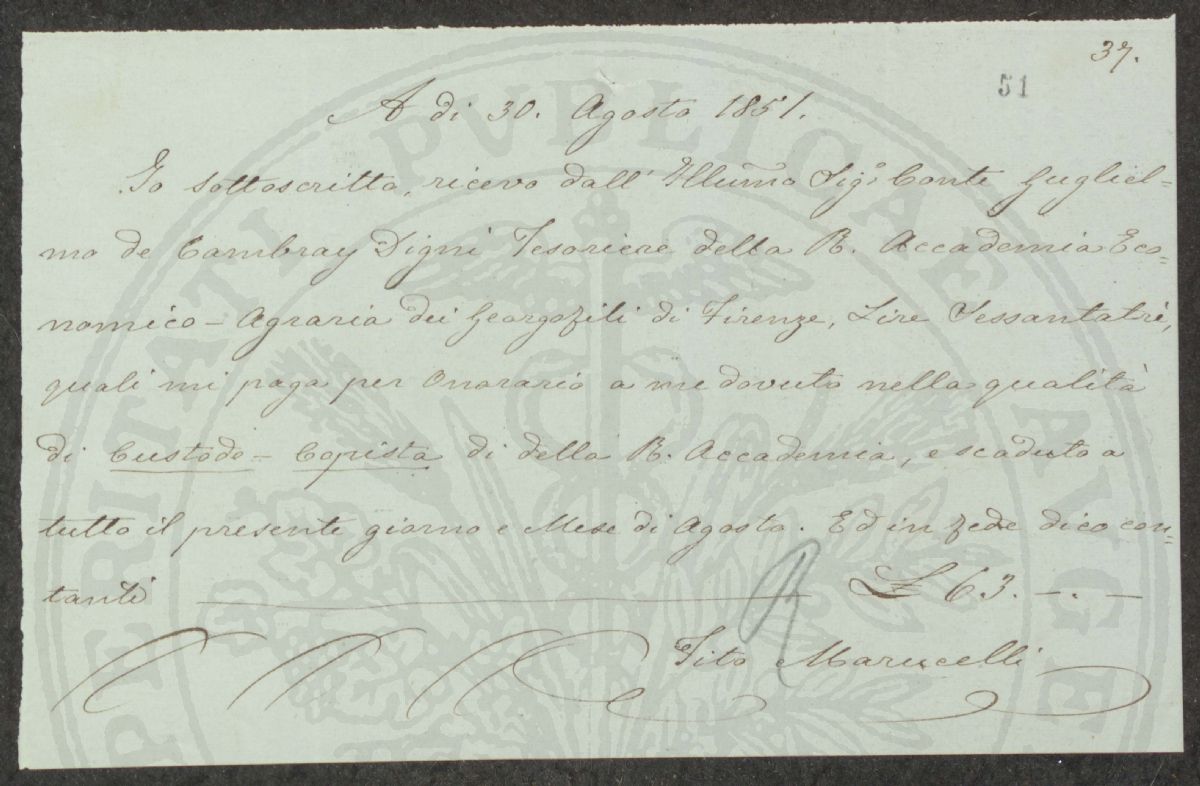 37.
51
A di 30. Agosto 1851.
Io sottoscritto, ricevo dall' Illumo Sigr Conte Gugliel=
mo de Cambray Digni Tesoriere della R. Accademia Eco=
nomico - Agraria dei Georgofili di Firenze, Lire Sessantatrè,
quali mi paga per Onorario a me dovuto nella qualità
di Custode - Copista di della R. Accademia, e scaduto a
tutto il presente giorno e Mese di Agosto. Ed in fede dico con=
tanti £ 63. -.-
Tito Marucelli
PROSPERITATI PVBLICAE AVGE